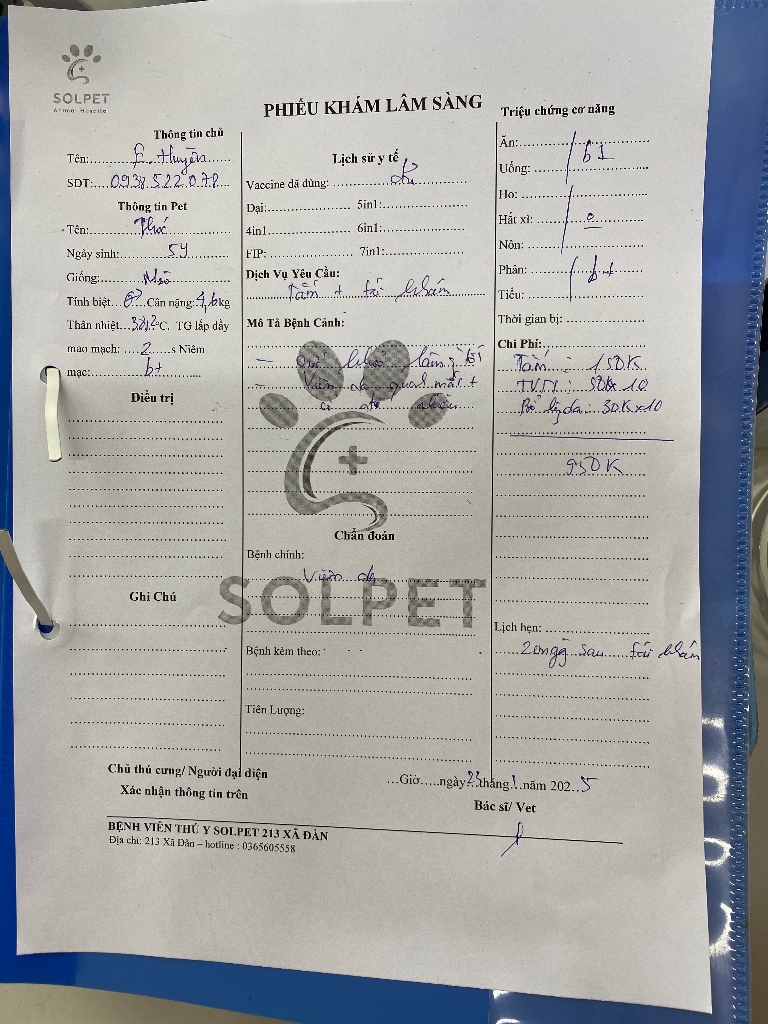 SOLPET
Animal Hospital
PHIẾU KHÁM LÂM SÀNG
Thông tin chủ
Tên: E. Huyền
SDT: 0938.522.078
Thông tin Pet
Tên: Thóc
Ngày sinh: 5Y
Giống: Mèo
Tính biệt Cân nặng: 4,6 kg
Thân nhiệt 38,2 °C. TG lấp đầy
mao mạch: 2 s Niêm
mạc: bt
Điều trị
Ghi Chú
Lịch sử y tế
Vaccine đã dùng:
Dại: 5in1:
4in1 6in1:
FIP: 7in1:
Dịch Vụ Yêu Cầu:
Tắm + tái khám
Mô Tả Bệnh Cảnh:
- 
- Viêm da quanh mắt +
Chẩn đoán
Bệnh chính:
Viêm da
SOLPET
Bệnh kèm theo:
Tiên Lượng:
Triệu chứng cơ năng
Ăn: bt
Uống:
Ho:
Hắt xì: 0
Nôn:
Phân: bt
Tiểu:
Thời gian bị:
Chi Phí:
Tắm: 150K
TVSY: 50K x 10
Bổ da: 30K x 10
950K
Lịch hẹn:
sau tái khám
Chủ thú cưng/ Người đại diện
Xác nhận thông tin trên
Giờ ngày 23 tháng 1 năm 2025
Bác sĩ/ Vet
BỆNH VIỆN THÚ Y SOLPET 213 XÃ ĐÀN
Địa chỉ: 213 Xã Đàn – hotline : 0365605558